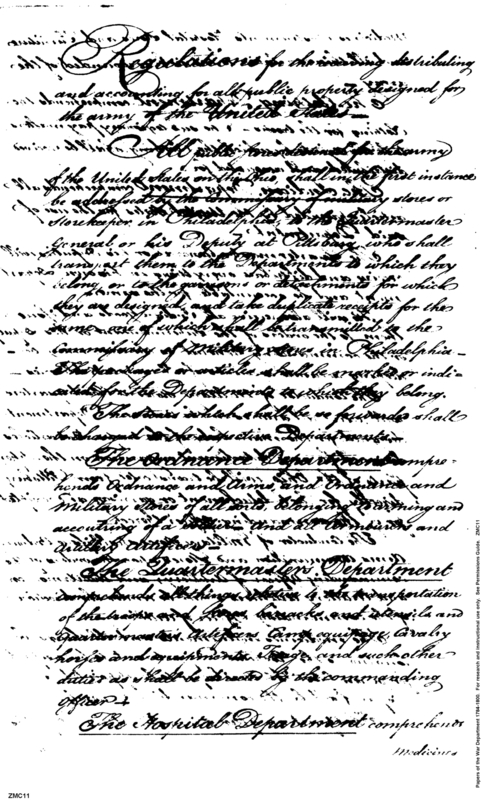 Regulations for the receiving distributing
and accounting for all public property designed for
the army of the United States—
All public stores destined for the army
of the United States on the Ohio, shall in the first instance
be addressed by the Commissary of military stores or
Storekeeper in Philadelphia, to the Quartermaster
General or his Deputy at Pittsburg who shall
transmit them to the Departments to which they
belong, or to the garrisons or detachments for which
they are designed, and take duplicate receipts for the
same, one of which shall be transmitted to the
Commissary of Military stores in Philadelphia—
The packages or articles shall be marked or indi-
cated for the Departments to which they belong.
The stores which shall be so forwarded shall
be charged to the respective Departments—
The Ordnance Department compre-
hends Ordnance and Arms, and Ordnance and
Military stores of all sorts, belonging to arming and
accoutring of a soldier and Armourers and
Artillery Artificers—
The Quartermasters Department
comprehends all things relative to the transportation
of the troops and stores barracks and utensils and
Quartermasters Artificers Camp equipage Cavalry
horses and equipments, Forage, and such other
duties as shall be directed by the commanding
officer—
The Hospital Department comprehends
medicines
ZMC11
Papers of the War Department 1784-1800. For research and instructional use only. See Permissions Guide. ZMC11